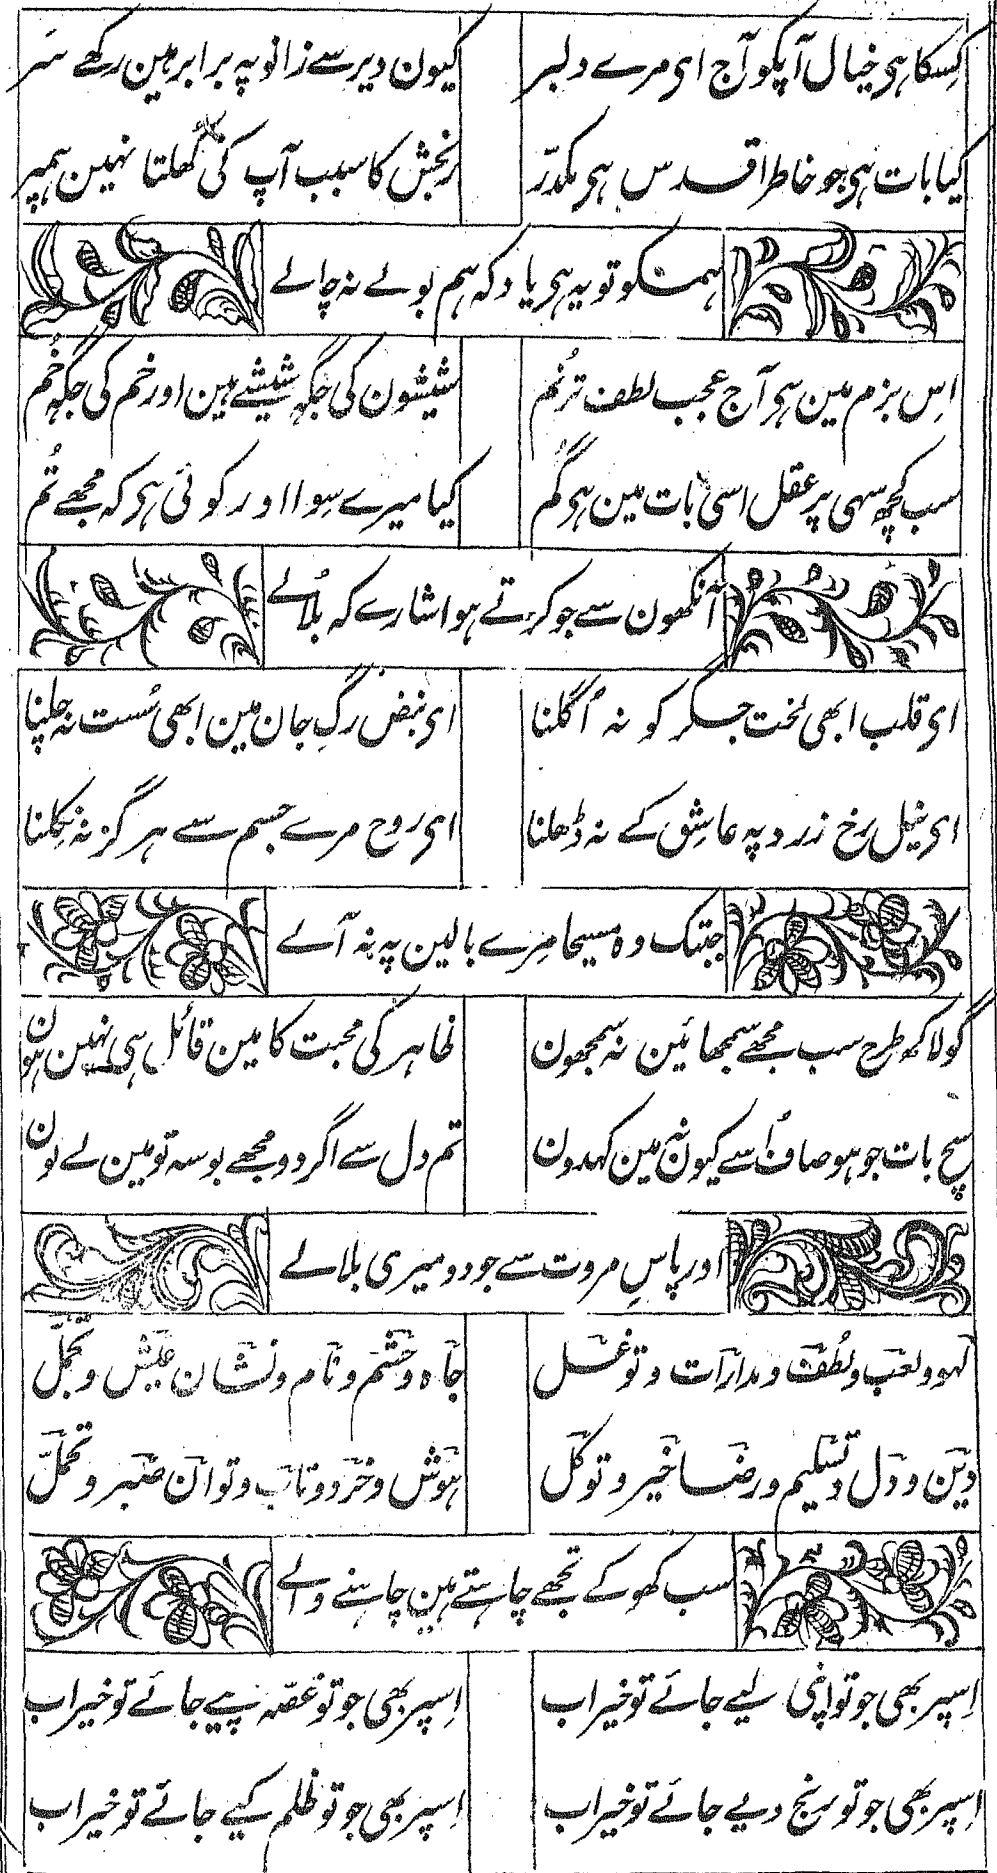 کسکا ہی خیال آپکو آج ای مرے دلبر کیون دیر سے زانو پہ برابر ہین رکھے سَر
کیا بات ہی جو خاطر اقدس ہی مکدّر رنجش کا سبب آپ کی کُھلتا نہین ہمپر
ہمنکو تو یہ ہی یاد کہ ہم بولے نہ چالے
اِس بزم مین ہی آج عجب لطف ترنُم شیشون کی جگہ شیشے ہین اور خم کی جگہ خُم
سب کچھ سہی پر عقل اسی بات مین ہی گُم کیا میرے سِوا اور کوئی ہی کہ مجھے تُم
آنکھون سے جو کرتے ہو اشارے کہ بُلالے
ای قلب ابھی لخت جگر کو نہ اُگلنا ای نبض رگِ جان مین ابھی سُست نہ چلنا
ای نیل رخ زرد پہ عاشِق کے نہ ڈھلنا ای روح مرے جسم سے ہرگز نہ نِکلنا
جبتک وہ مسیحا مِرے بالین پہ نہ آلے
گو لاکھ طرح سب مجھے سمجھائین نہ سمجھون ظاہر کی محبت کا مین قائل ہی نہین ہون
سچ بات جو ہو صاف اُسے کیون نہ مین کہدون تم دل سے اگر دو مجھے بوسہ تو مین لے لون
اور پاسِ مروت سے جو دو میری بلالے
لہو و لعب و لُطف و مدارات و توغل جاہ و حشم و نام و نشان عیش و تجمّل
دین و دل و تسلیم و رضا خیر و توکل ہوش و خرد و تاب و توان صبر و تحمّل
سب کھو کے تجھے چاہتے ہین چاہنے والے
اِسپر بھی جو تو اپنی لیے جائے تو خیر اب اِسپر بھی جو تو غصّہ پیے جائے تو خیر اب
اِسپر بھی جو تو رنج دیے جائے تو خیر اب اِسپر بھی جو تو ظلم کیے جائے تو خیر اب